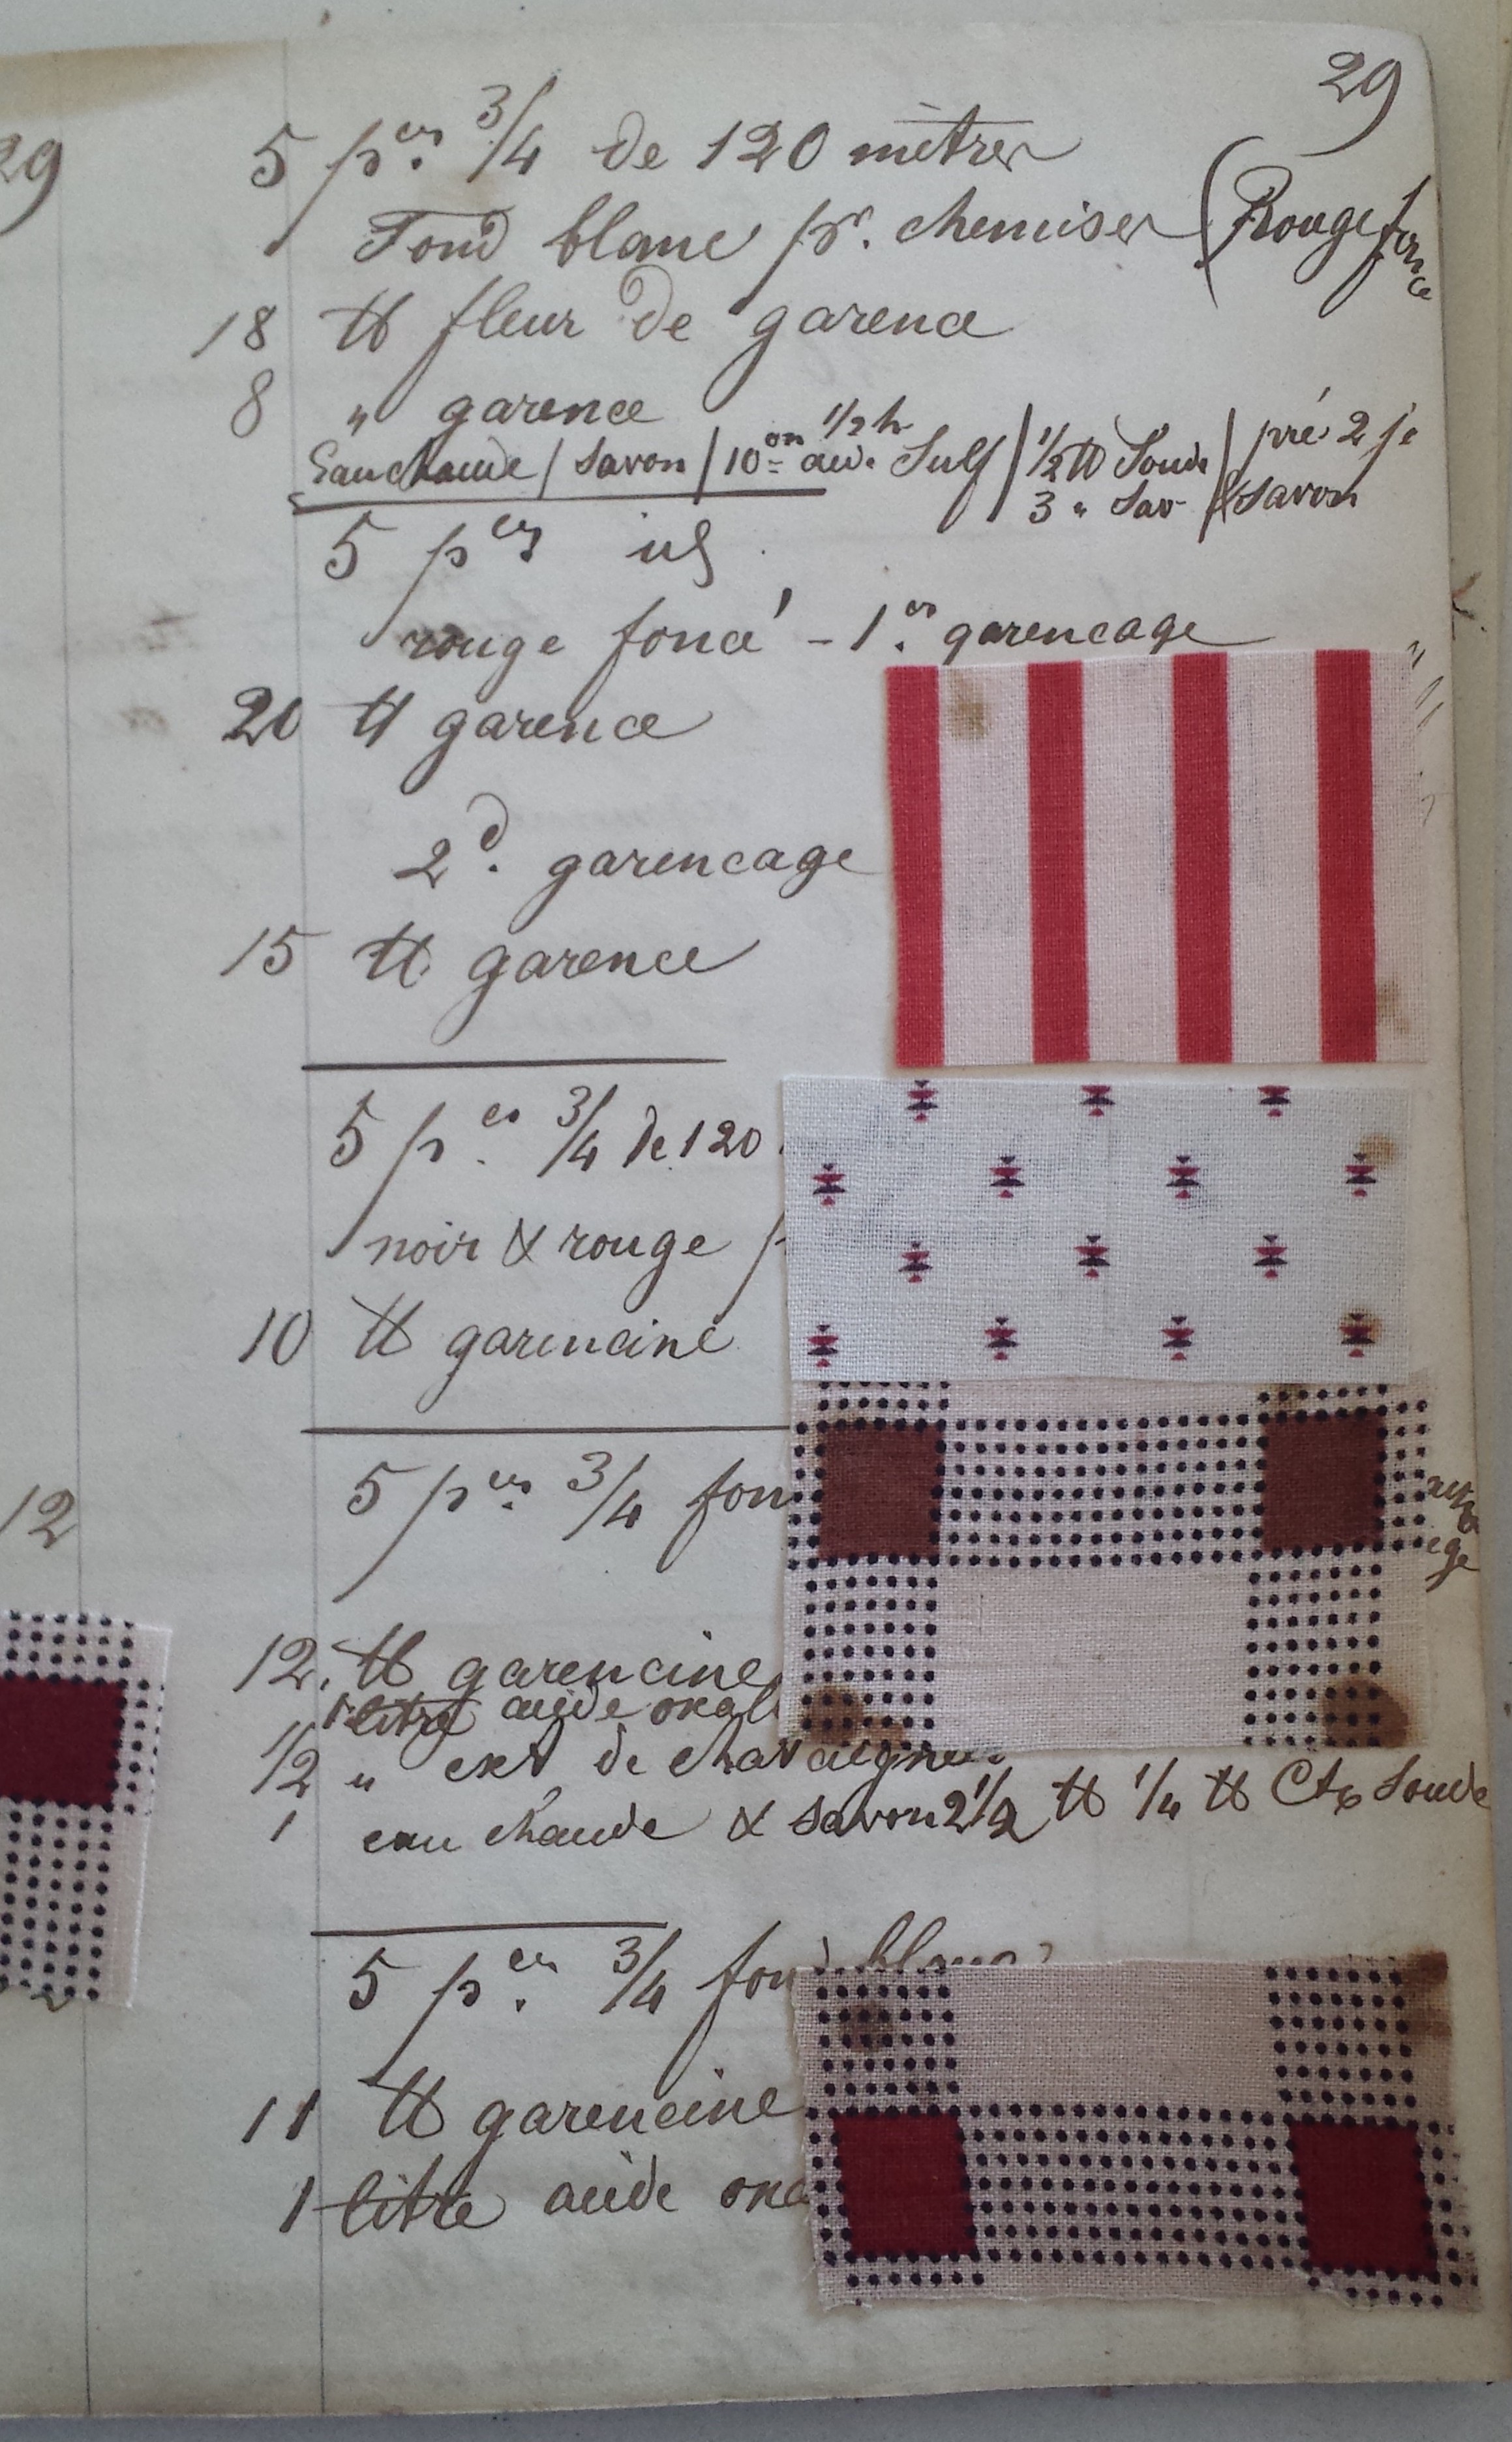 29
29
5 p.es 3/4 de 120 mètres
Fond blanc pr. chemises (Rouge foncé
18 ℔ fleur de garence
8 " garence
Eau chaude / savon / 10 on 1/2 h acid. Sulf / 1/2 ℔ Soude / pré 2 j.
3 " Sav. / & savon
5 p.es id
rouge foncé - 1.er garencage
20 ℔ garence
2d. garencage
15 ℔ garence
5 p.es 3/4 de 120
noir & rouge
10 ℔ garencine
5 p.es 3/4 fon
12
12. ℔ garencine
1 litre acide oxal
1/2 " ext de chataignier
1 eau chaude & savon 2 1/2 ℔ 1/4 ℔ Cte Soude
5 p.es 3/4 fond blanc
11 ℔ garencine
1 litre acide oxa